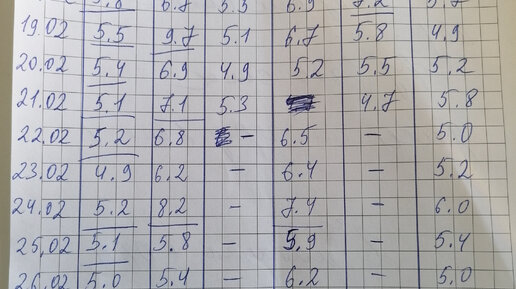 5.8 6.7 5.3 6.9 7.2 5.7
19.02 5.5 9.7 5.1 6.7 5.8 4.9
20.02 5.4 6.9 4.9 5.2 5.5 5.2
21.02 5.1 7.1 5.3 4.7 5.8
22.02 5.2 6.8 – 6.5 – 5.0
23.02 4.9 6.2 – 6.4 – 5.2
24.02 5.2 8.2 – 7.4 – 6.0
25.02 5.1 5.8 – 5.9 – 5.4
26.02 5.0 5.4 – 6.2 – 5.0